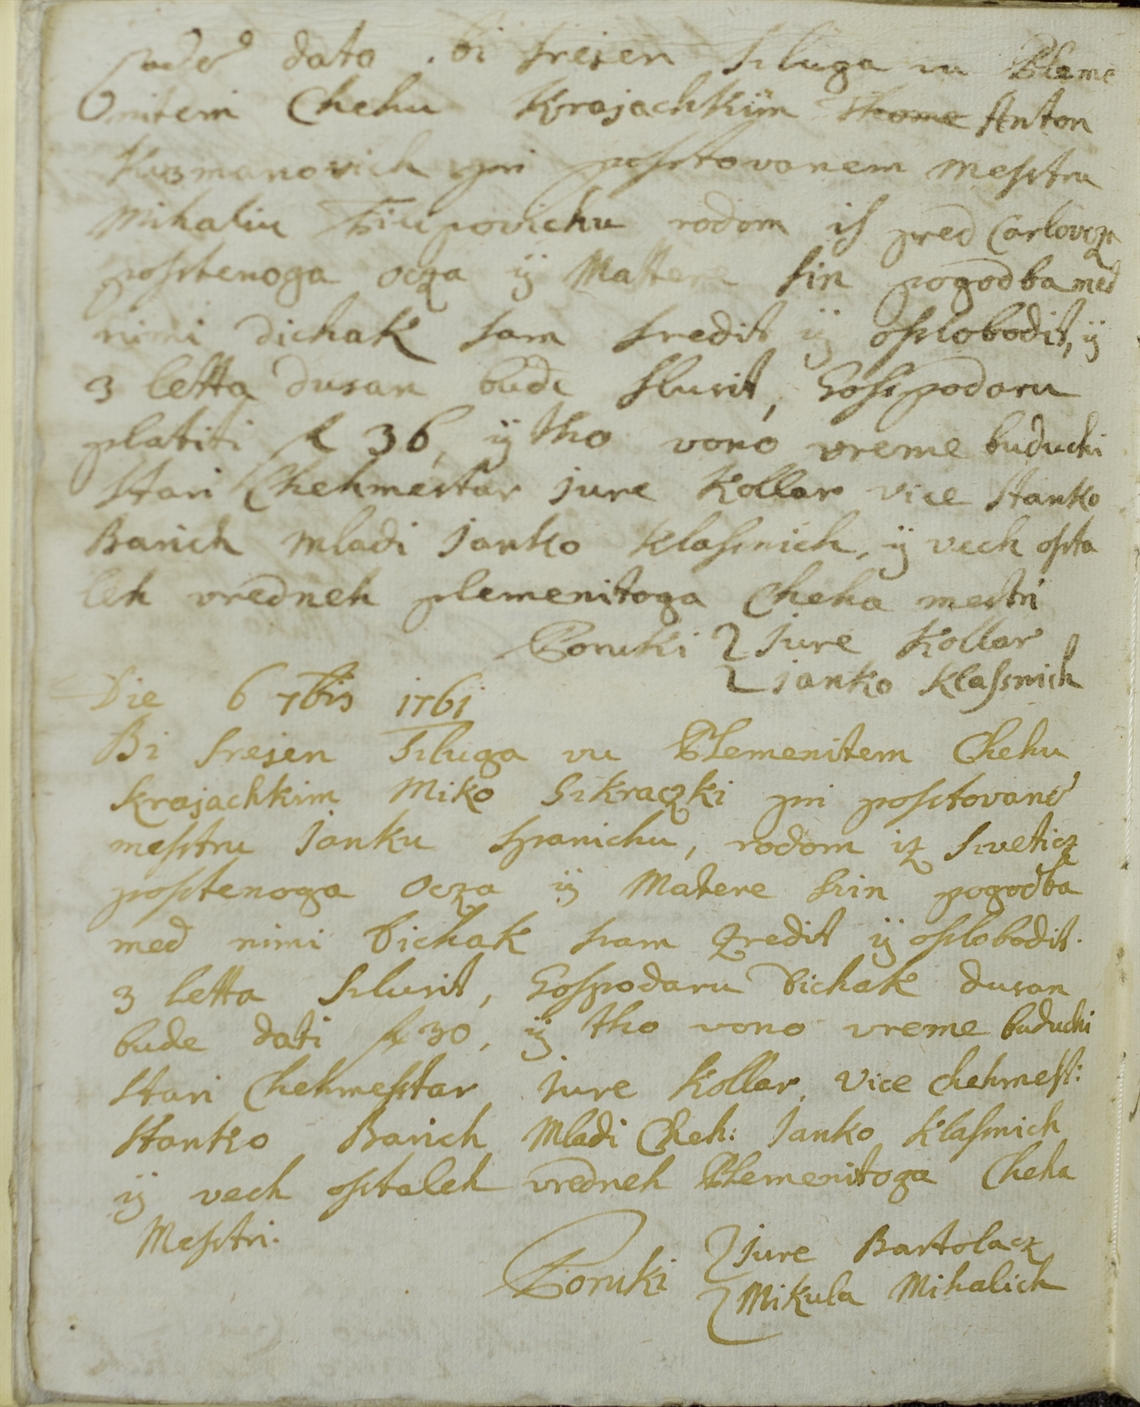 dato bi srejen Sluga vu Pleme
Onitem Chehu Krajachkim Thome Anton
Kuzmanovich pri posstovanem Messtru
Mihaliu Filipovichu rodom is pred Carlovcza
posstenoga Ocza ÿ Mattere sin pogodba med
nimi dichak sam sredit ÿ osslobodit, ÿ
3 letta dusan bude slusit, Gosspodaru
platiti f 36, ÿ tho vono vreme buduchi
Stari Chehmestar Jure Kollar vice Stanko
Barich Mladi Janko Klassnich, ÿ vech ossta
leh vredneh plemenitoga Cheha mestri
Poruki Jure Kollar
Janko Klassnich
Die 6 7bris 1761
Bi srejen Sluga vu Plemenitem Chehu
Krajachkim Miko Szkraczki pri posstovane
messtru Janku Spanichu, rodom iz Szveticz
posstenoga Ocza ÿ Matere szin pogodba
med nimi Dichak szam zredit ÿ osslobodit.
3 letta Slusit, Gospodaru Dichak dusan
bude dati f 30, ÿ tho vono vreme buduchi
Stari Chehmesstar Jure Kollar, Vice chehmest:
Stanko Barich Mladi Cheh: Janko Klassnich
ÿ vech osstaleh vredneh Plemenitoga Cheha
Messtri.
Poruki Jure Bartolacz
Mikula Mihalich